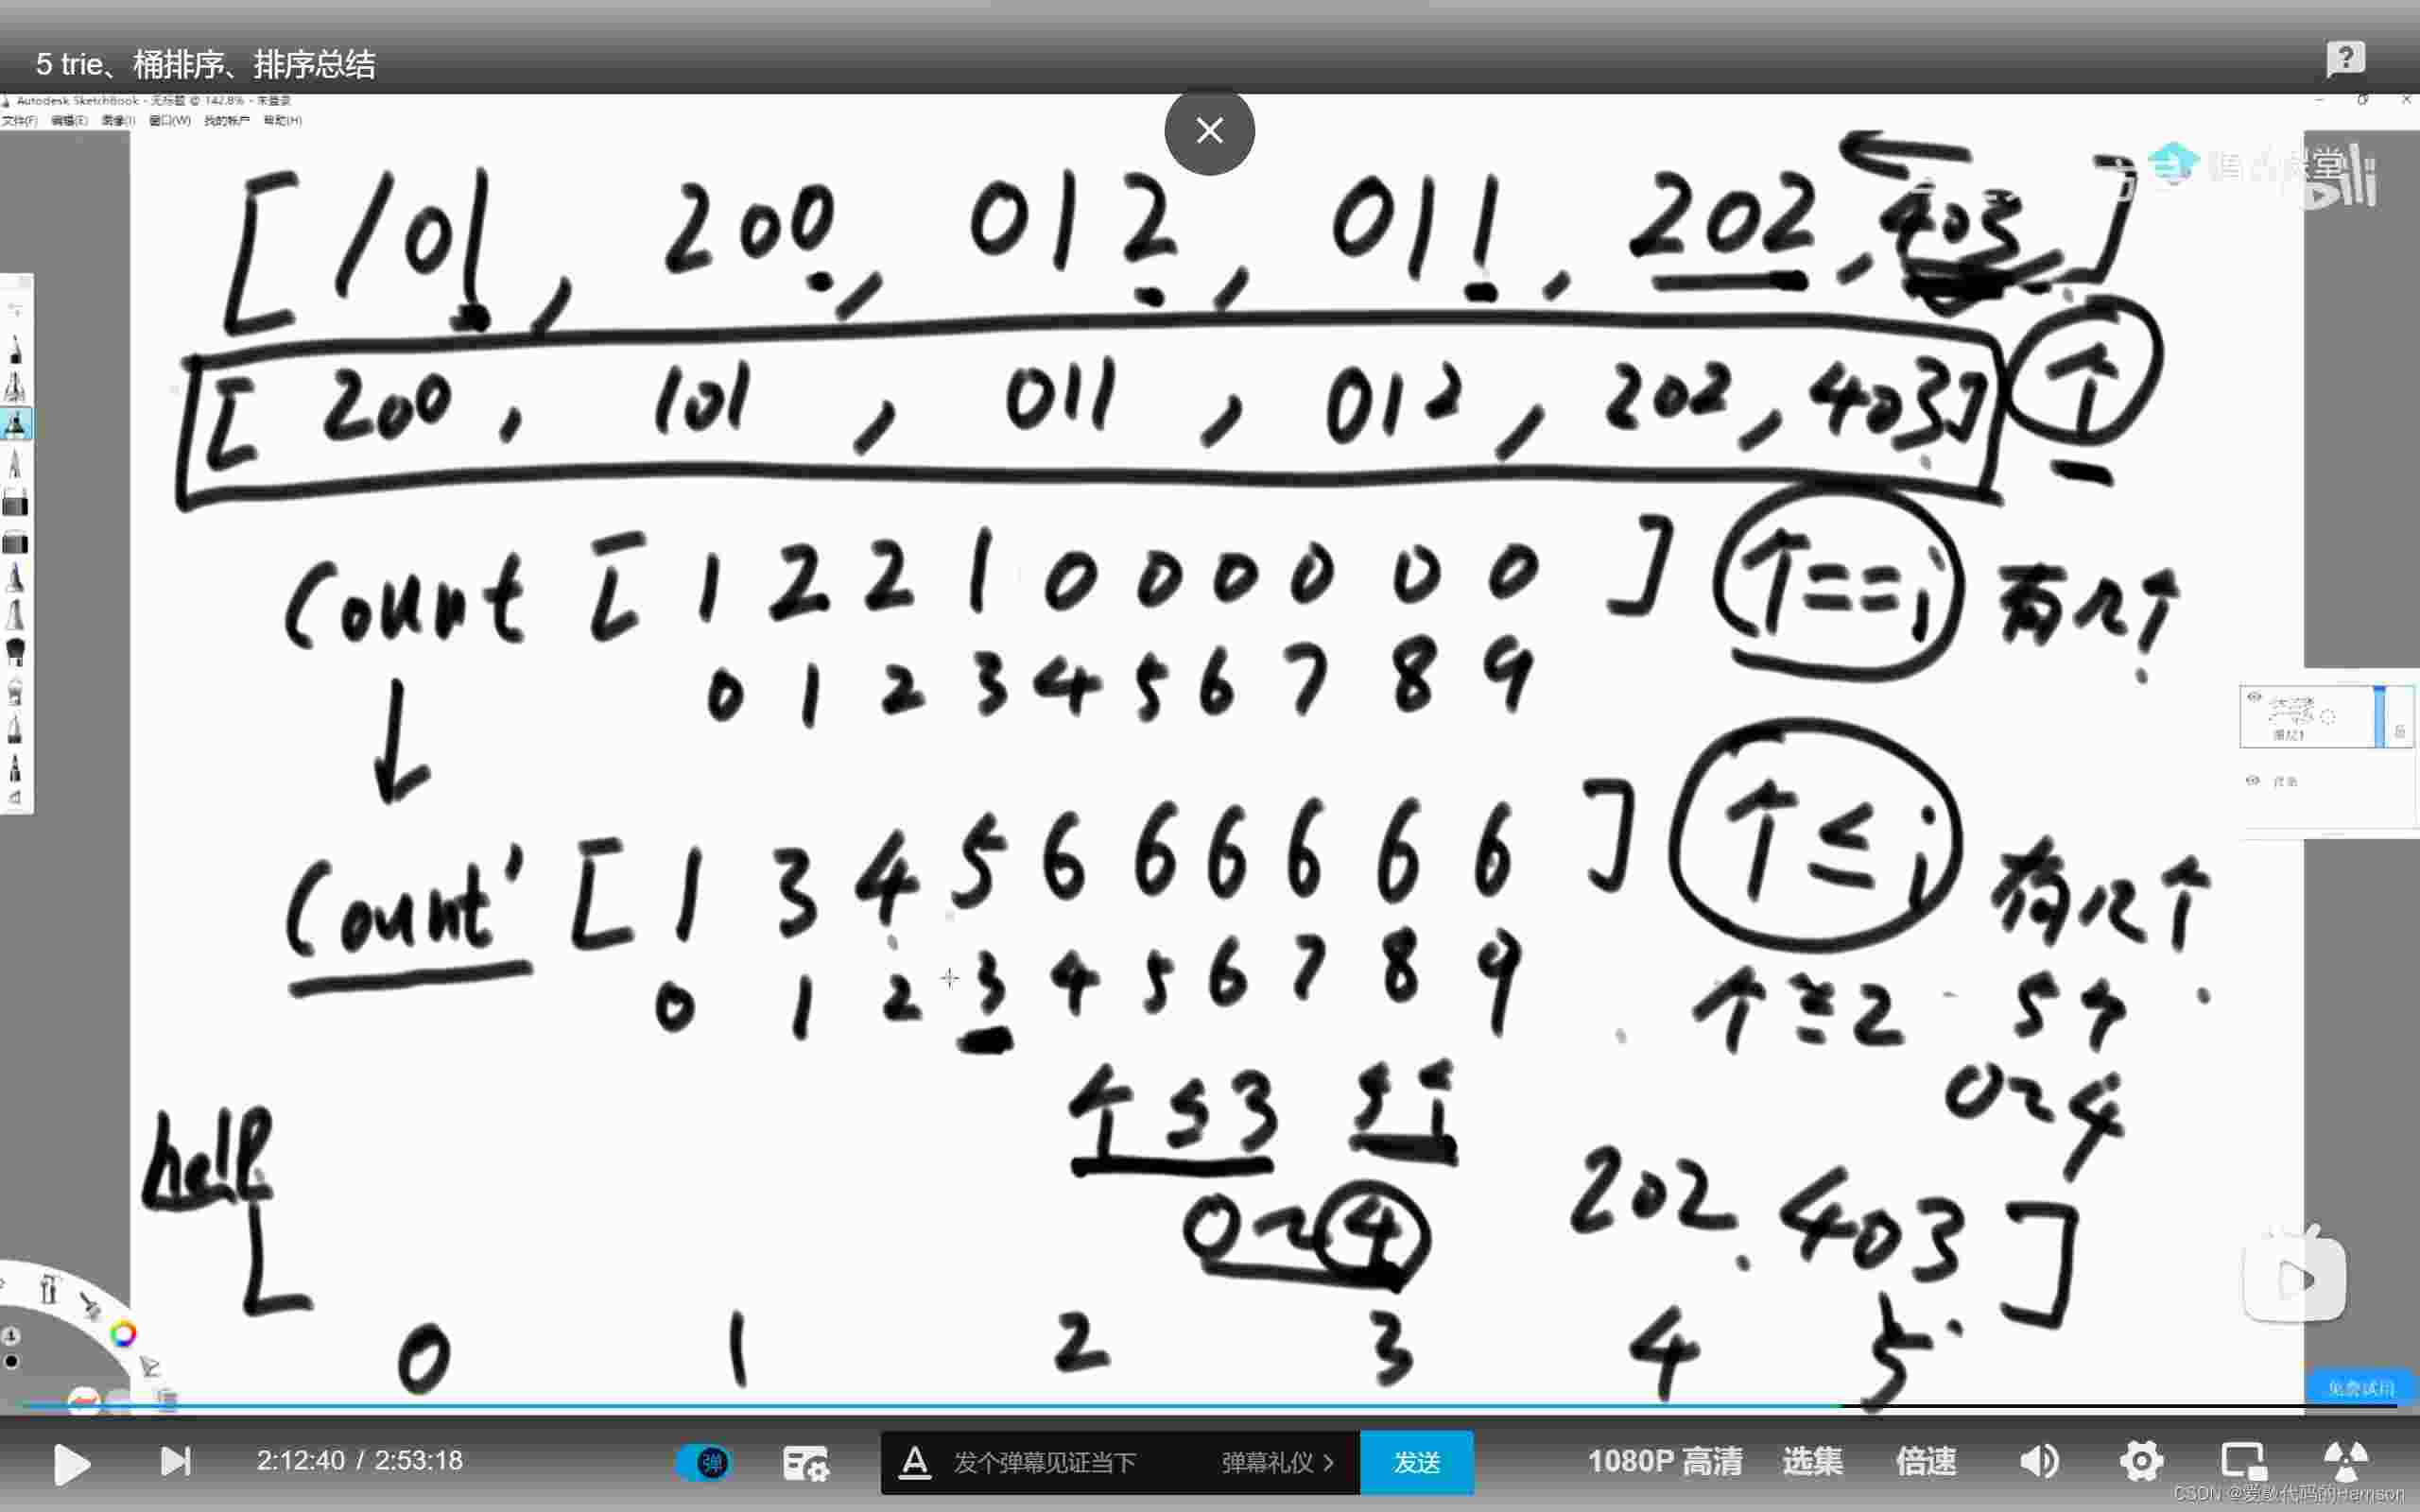 5 trie、桶排序、排序总结
Autodesk SketchBook - 无标题 @ 142.8% - 未登录
文件(F) 编辑(E) 图像(I) 窗口(W) 我的帐户 帮助(H)
[101, 200, 012, 011, 202, 403, ]
[200, 101, 011, 012, 202, 403] 个
Count [1 2 2 1 0 0 0 0 0 0] 个==i 有几个
0 1 2 3 4 5 6 7 8 9
Count' [1 3 4 5 6 6 6 6 6 6] 个≤i 有几个
0 1 2 3 4 5 6 7 8 9
个≤2 5个
0~4
个≤3 5个
0~4
help [ 202. 403 ]
0 1 2 3 4 5
免费试用
2:12:40 / 2:53:18
弹
发个弹幕见证当下
弹幕礼仪 >
发送
1080P 高清
选集
倍速
CSDN @爱敲代码的Harrison